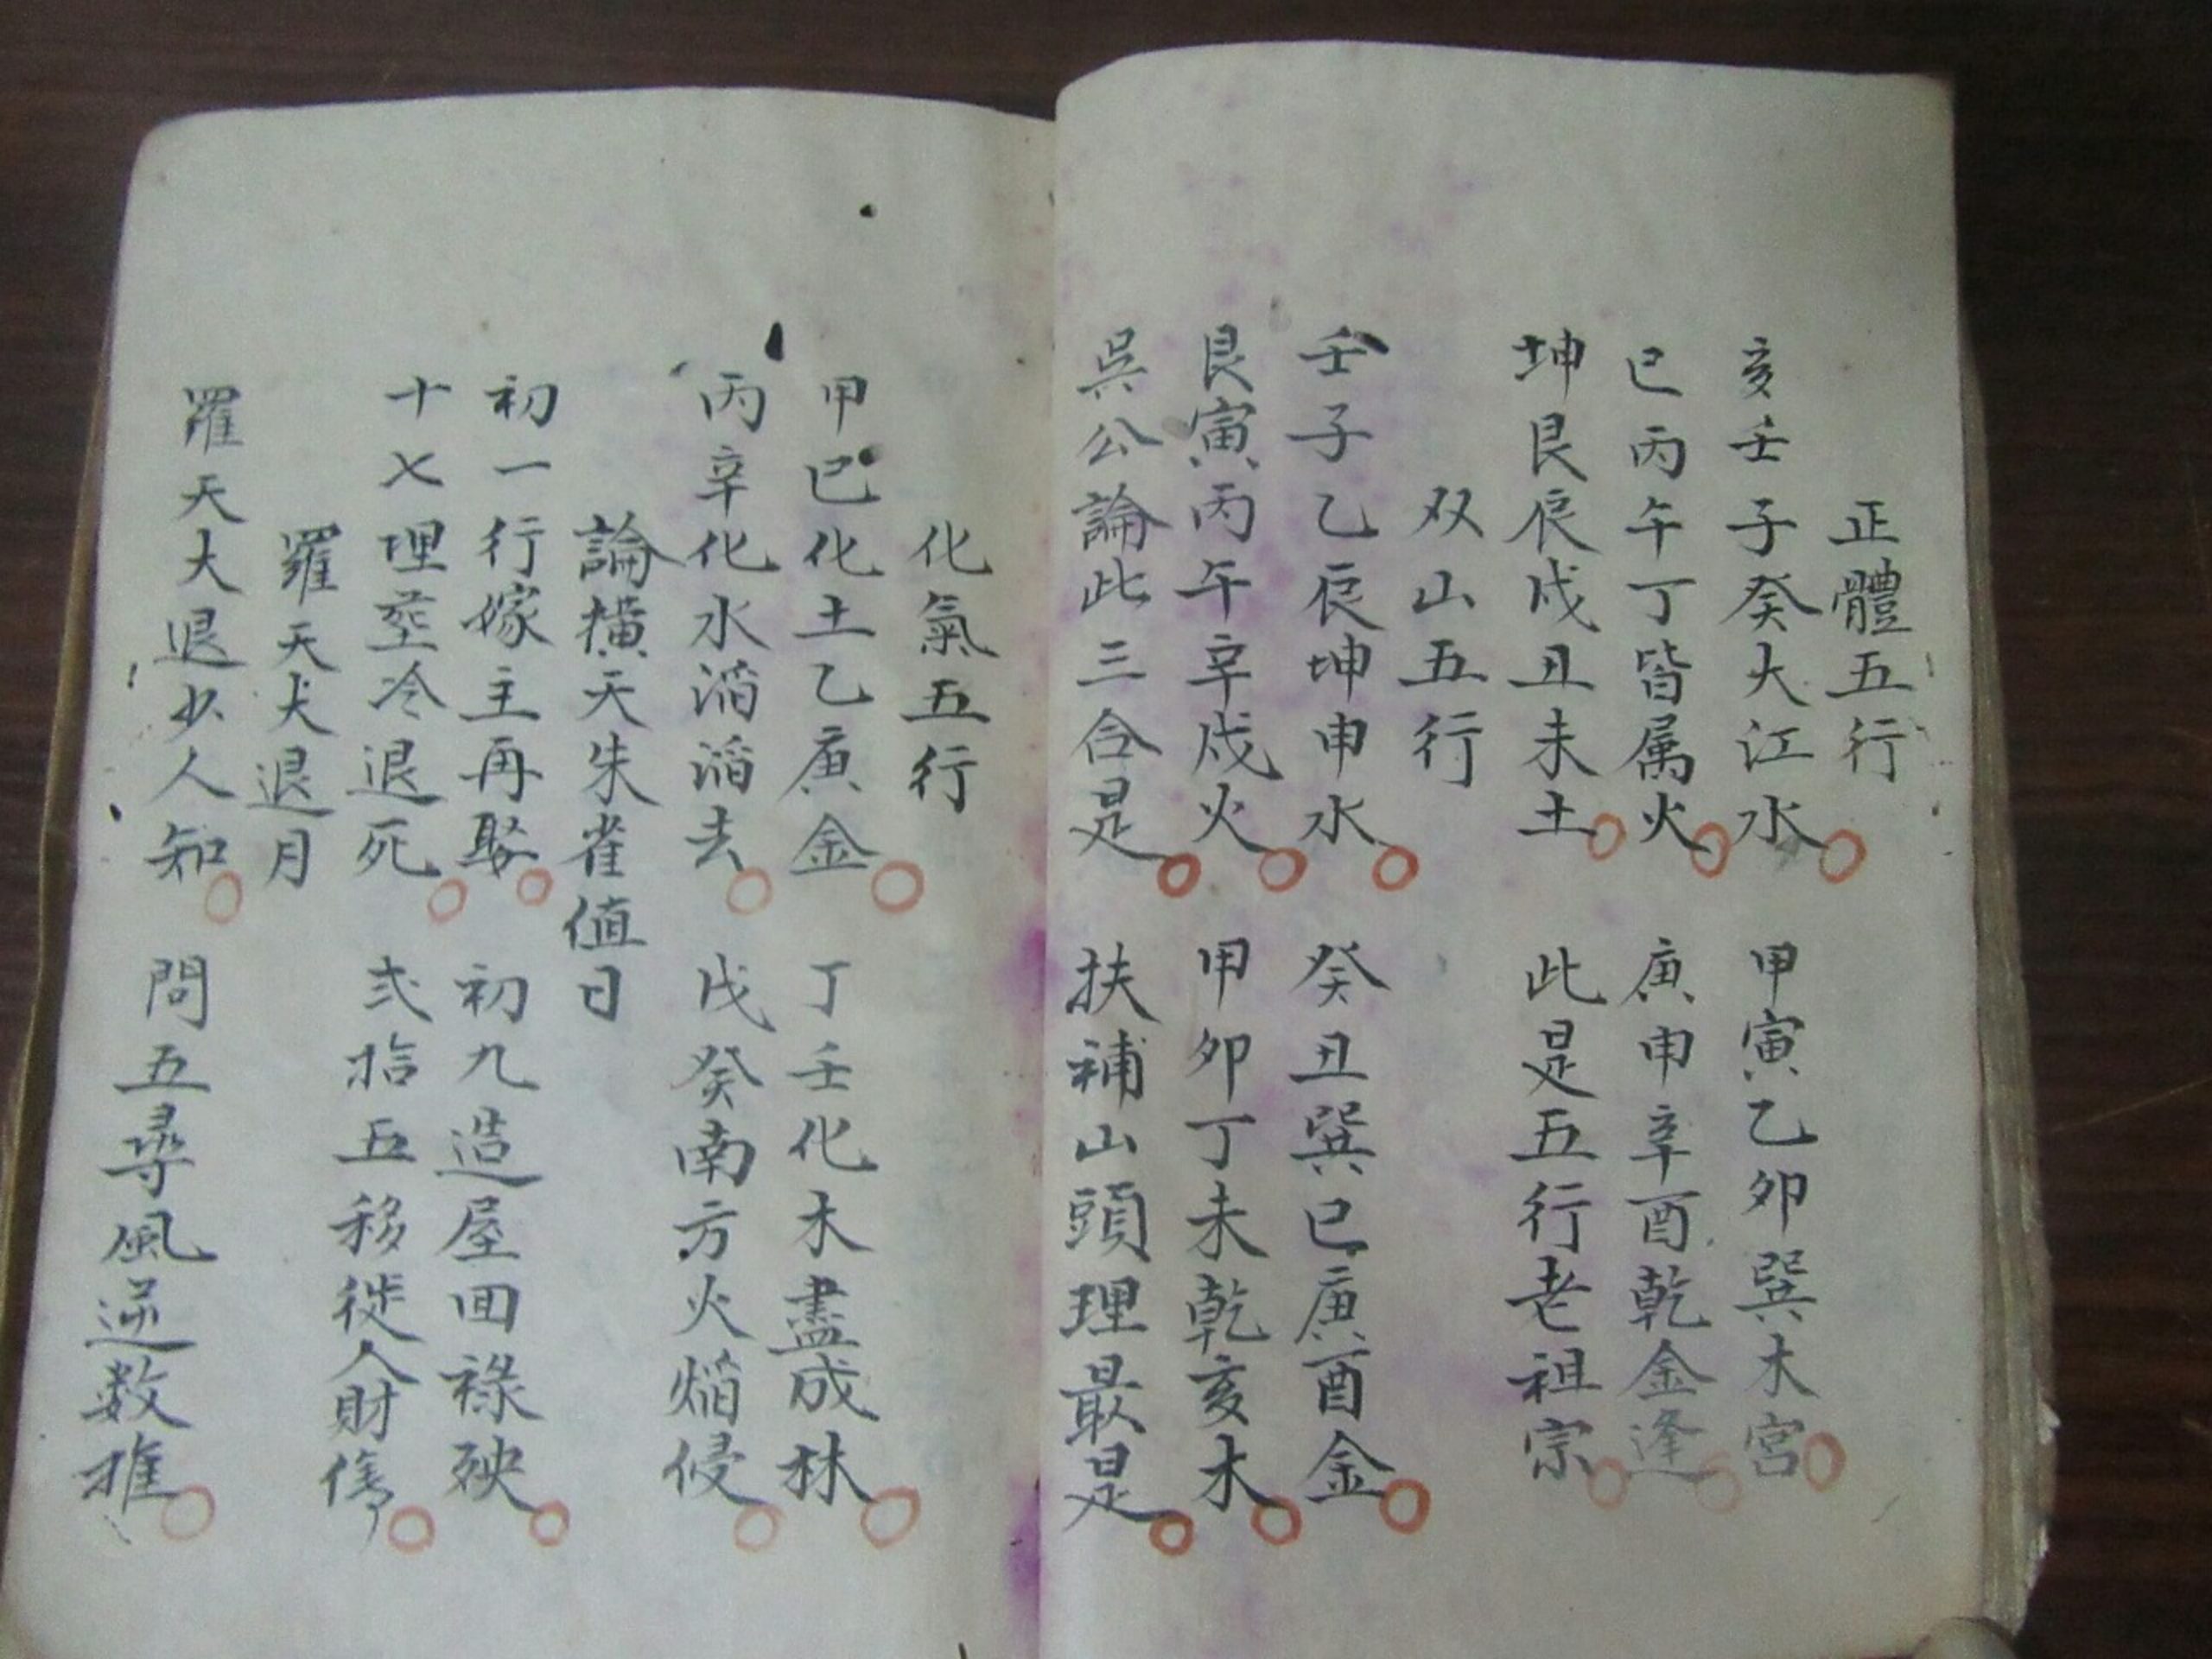 正體五行
亥壬子癸大江水 甲寅乙卯巽木宮
巳丙午丁皆属火 庚申辛酉乾金逢
坤艮辰戌丑未土 此是五行老祖宗
双山五行
壬子乙辰坤申水 癸丑巽巳庚酉金
艮寅丙午辛戌火 甲卯丁未乾亥木
吳公論此三合是 扶補山頭理最是
化氣五行
甲巳化土乙庚金 丁壬化木盡成林
丙辛化水滔滔去 戊癸南方火焰侵
論横天朱雀值日
初一行嫁主再娶 初九造屋回祿殃
十七埋葬冷退死 弍拾五移徙人財
羅天大退月
羅天大退少人知 問五尋風逆数推